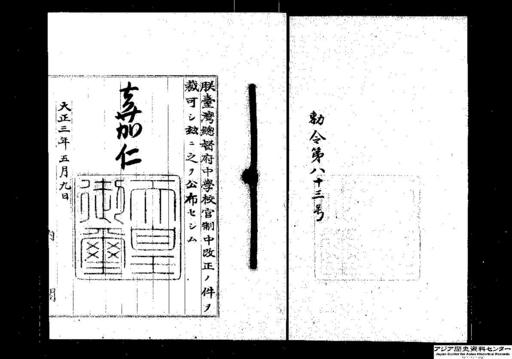 勅令第八十三号
朕臺灣總督府中學校官制中改正ノ件ヲ
裁可シ玆ニ之ヲ公布セシム
嘉仁
天皇御璽
大正三年五月九日
内閣
アジア歴史資料センター
Japan Center for Asian Historical Records